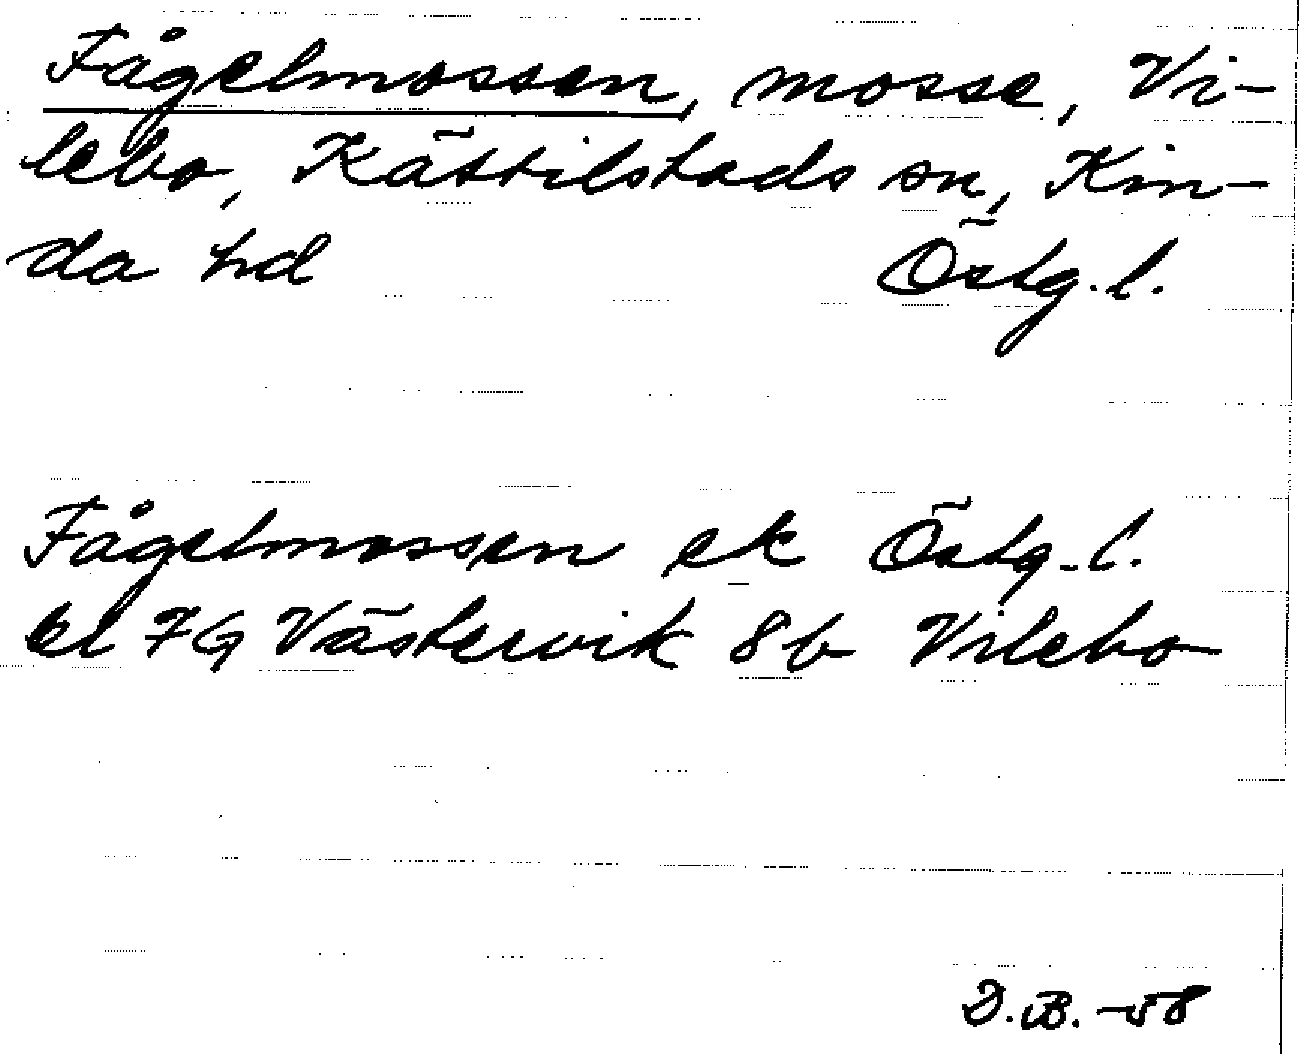 Fågelmossen, mosse, Vi-
lebo, Kättilstads sn, Kin-
da hd Östg.l.
Fågelmossen ek Östg.l.
bl 7G Västervik 8b Vilebo
D.B. -58